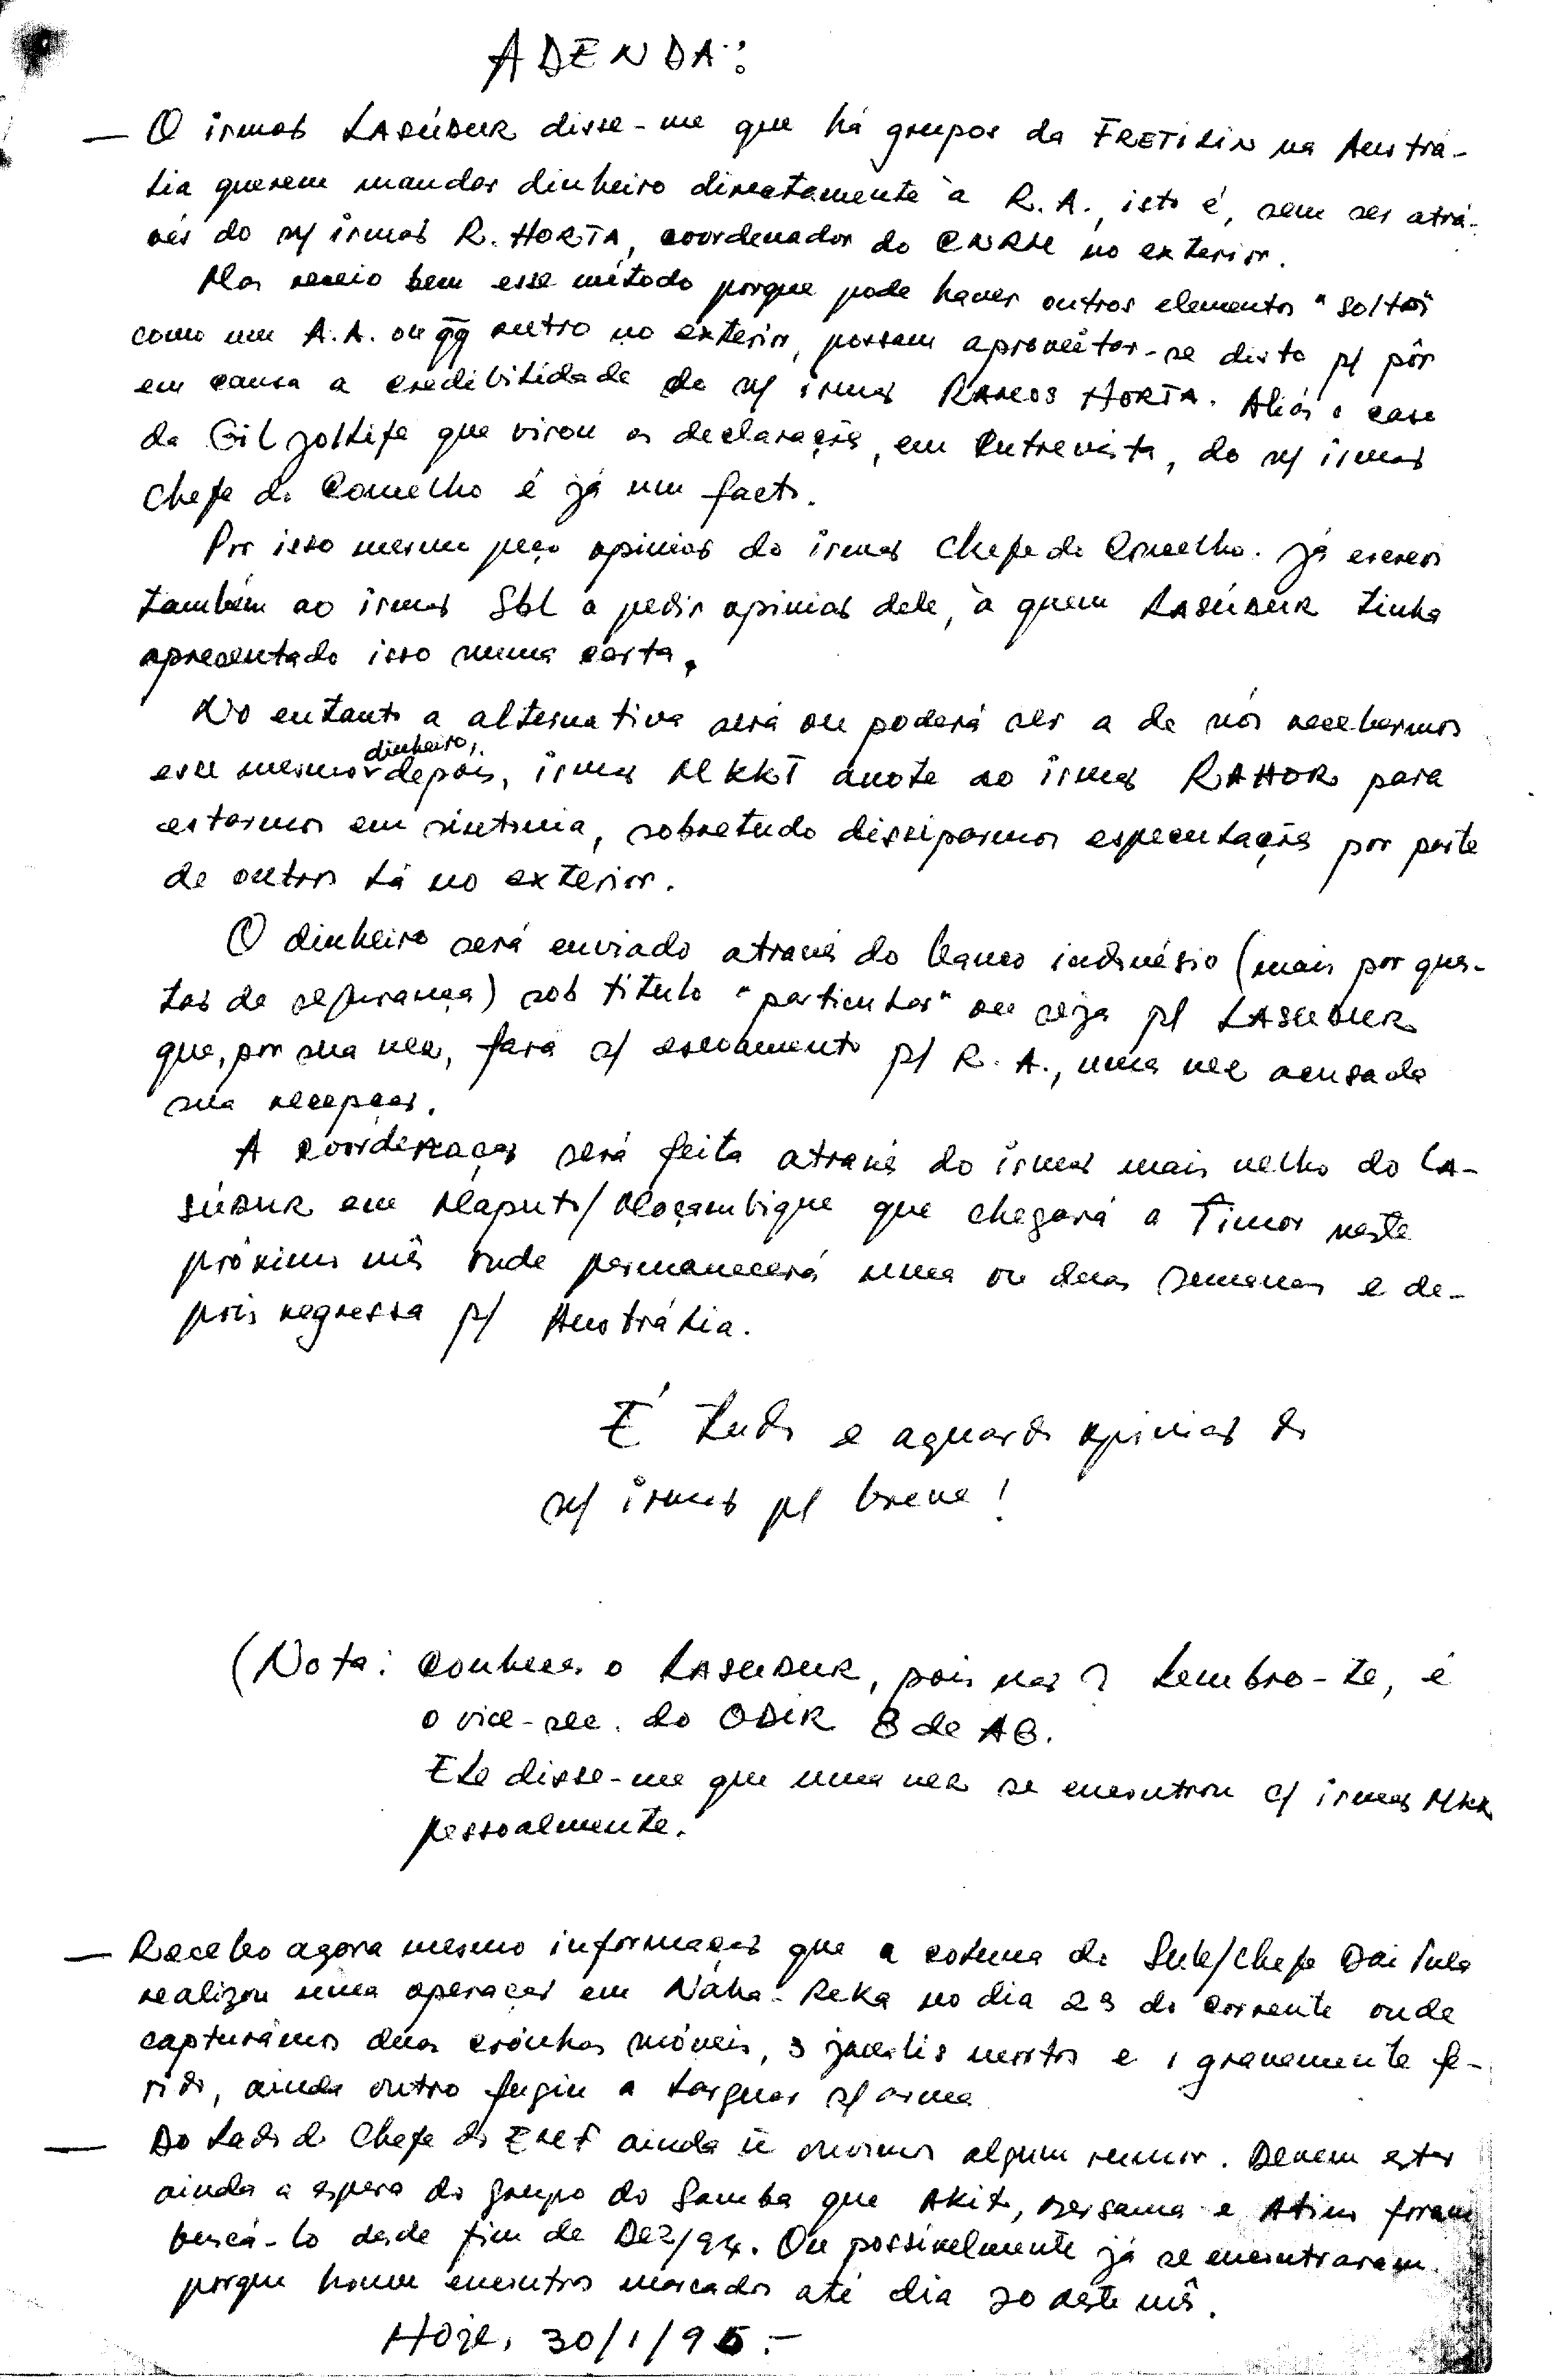 ADENDA:
— O irmão LASÚDUR disse-me que há grupos da FRETILIN na Austrá-
lia querem mandar dinheiro directamente à R. A., isto é, sem ser atra-
vés do n/ irmão R. HORTA, coordenador do CNRM no exterior.
Mas receio bem esse método porque pode haver outros elementos "soltos"
como um A.A. ou qq outro no exterior, possam aproveitar-se disto p/ pôr
em causa a credibilidade do n/ irmão RAMOS HORTA. Aliás o caso
da Gil Jolliffe que virou as declarações, em entrevista, do n/ irmão
Chefe do Conselho é já um facto.
Por isso mesmo peço opinião do irmão Chefe do Conselho. Já escrevi
também ao irmão Sbl a pedir opinião dele, à quem LASÚDUR tinha
apresentado isso numa carta.
No entanto a alternativa será ou poderá ser a de nós recebermos
esse mesmo dinheiro, depois, irmão MKKT anote ao irmão RAHOR para
estarmos em sintonia, sobretudo dissiparmos especulações por parte
de outros lá no exterior.
O dinheiro será enviado através do banco indonésio (mais por ques-
tão de segurança) sob título "particular" ou seja p/ LASUDUR
que, por sua vez, fará o/ escoamento p/ R. A., uma vez acusada
sua recepção.
A coordenação será feita através do irmão mais velho do LA-
SÚDUR em Maputo/Moçambique que chegará a Timor neste
próximo mês onde permanecerá uma ou duas semanas e de-
pois regressa p/ Austrália.
É tudo e aguardo opinião do
n/ irmão p/ breve!
(Nota: Conheces o LASUDUR, pois não? Lembro-te, é
o vice-sec. do ODIR 8 de AB.
Ele disse-me que uma vez se encontrou c/ irmão Mkk
pessoalmente.
— Recebo agora mesmo informação que a coluna do Sub/Chefe Dai Tula
realizou uma operação em Náha-Reka no dia 23 do corrente onde
capturámos duas crónhas móveis, 3 javalis mortos e 1 gravemente fe-
rido, ainda outro fugiu a largar s/ arma
— Do lado do Chefe do EMF ainda ñ ouvimos algum rumor. Devem estar
ainda a espera do grupo do Samba que Akito, Bersama e Atino foram
buscá-lo desde fim de Dez/94. Ou possivelmente já se encontraram
porque houve encontros marcados até dia 20 deste mês.
Hoje, 30/1/95.-